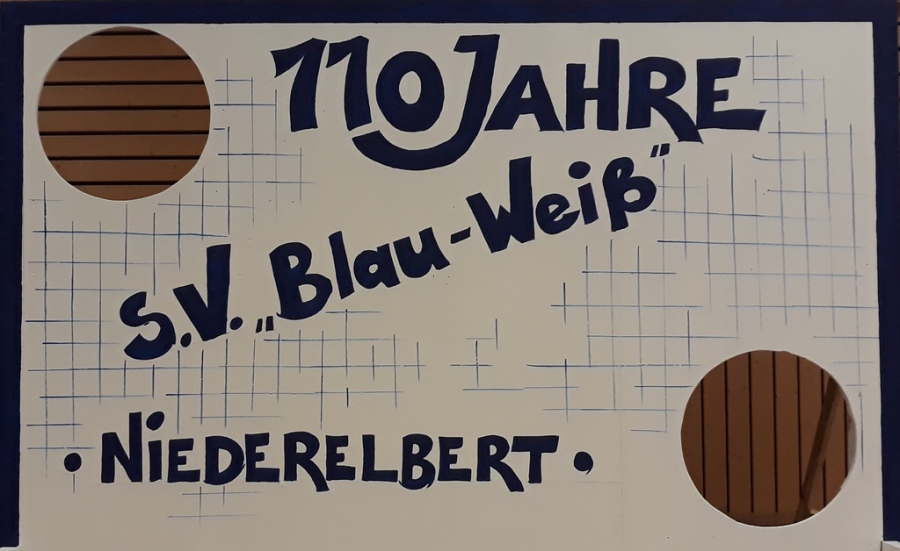 110 JAHRE
S.V. „Blau-Weiß"
• NIEDERELBERT •